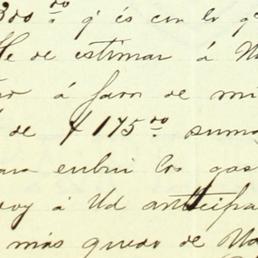 300.00 q' és con lo q
de estimar á
á favor de mi
de $ 175.00 suma
para cubrir los gas
doy á Ud anticipa
más quedo de